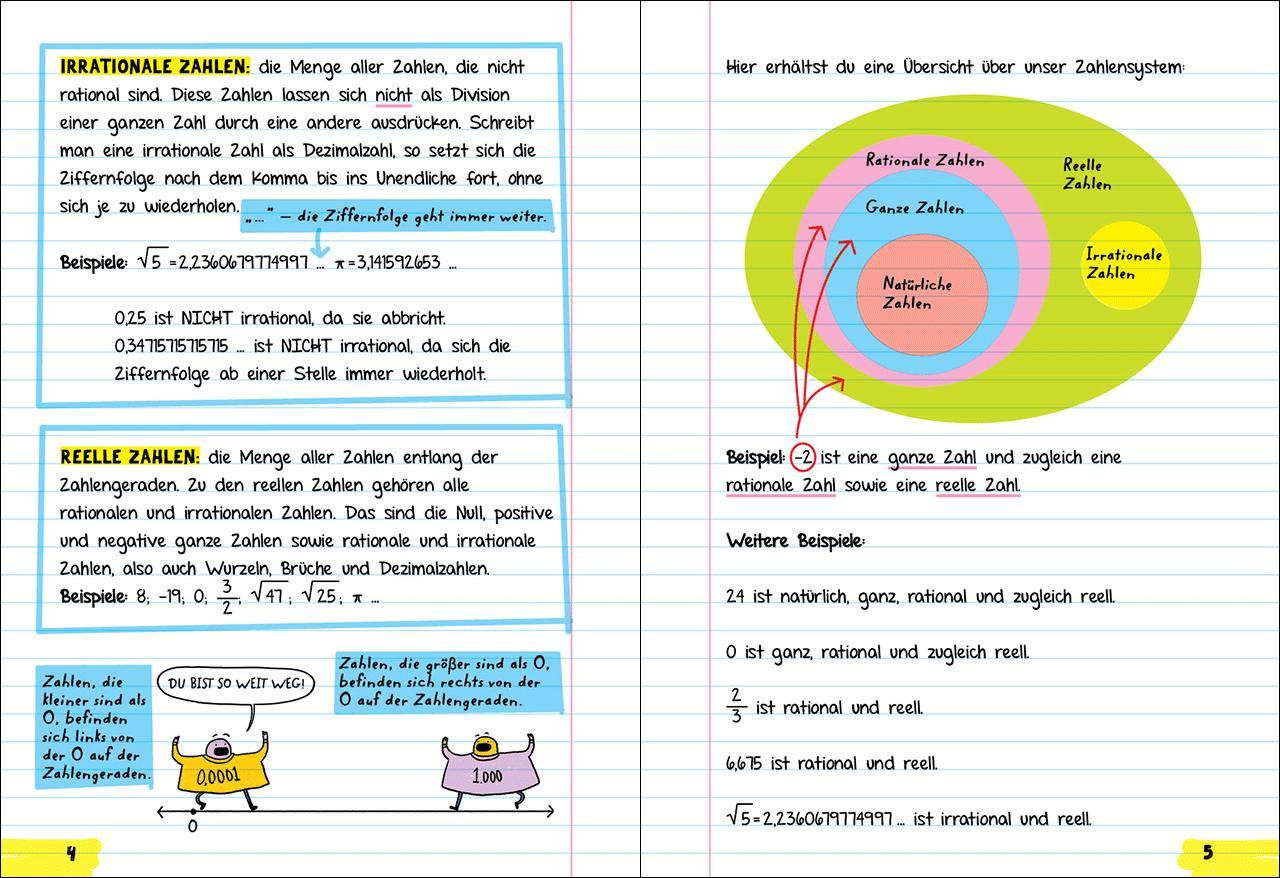 IRRATIONALE ZAHLEN: die Menge aller Zahlen, die nicht
rational sind. Diese Zahlen lassen sich nicht als Division
einer ganzen Zahl durch eine andere ausdrücken. Schreibt
man eine irrationale Zahl als Dezimalzahl, so setzt sich die
Ziffernfolge nach dem Komma bis ins Unendliche fort, ohne
sich je zu wiederholen.
„…" – die Ziffernfolge geht immer weiter.
Beispiele: √5 = 2,2360679774997 … π = 3,141592653 …
0,25 ist NICHT irrational, da sie abbricht.
0,34715715715715 … ist NICHT irrational, da sich die
Ziffernfolge ab einer Stelle immer wiederholt.
REELLE ZAHLEN: die Menge aller Zahlen entlang der
Zahlengeraden. Zu den reellen Zahlen gehören alle
rationalen und irrationalen Zahlen. Das sind die Null, positive
und negative ganze Zahlen sowie rationale und irrationale
Zahlen, also auch Wurzeln, Brüche und Dezimalzahlen.
Beispiele: 8; –19; 0; 3/2; √47; √25; π …
Zahlen, die
kleiner sind als
0, befinden
sich links von
der 0 auf der
Zahlengeraden.
DU BIST SO WEIT WEG!
Zahlen, die größer sind als 0,
befinden sich rechts von der
0 auf der Zahlengeraden.
0,0001
1.000
0
4
Hier erhältst du eine Übersicht über unser Zahlensystem:
Rationale Zahlen
Reelle
Zahlen
Ganze Zahlen
Irrationale
Zahlen
Natürliche
Zahlen
Beispiel: –2 ist eine ganze Zahl und zugleich eine
rationale Zahl sowie eine reelle Zahl.
Weitere Beispiele:
24 ist natürlich, ganz, rational und zugleich reell.
0 ist ganz, rational und zugleich reell.
2/3 ist rational und reell.
6,675 ist rational und reell.
√5 = 2,2360679774997 … ist irrational und reell.
5